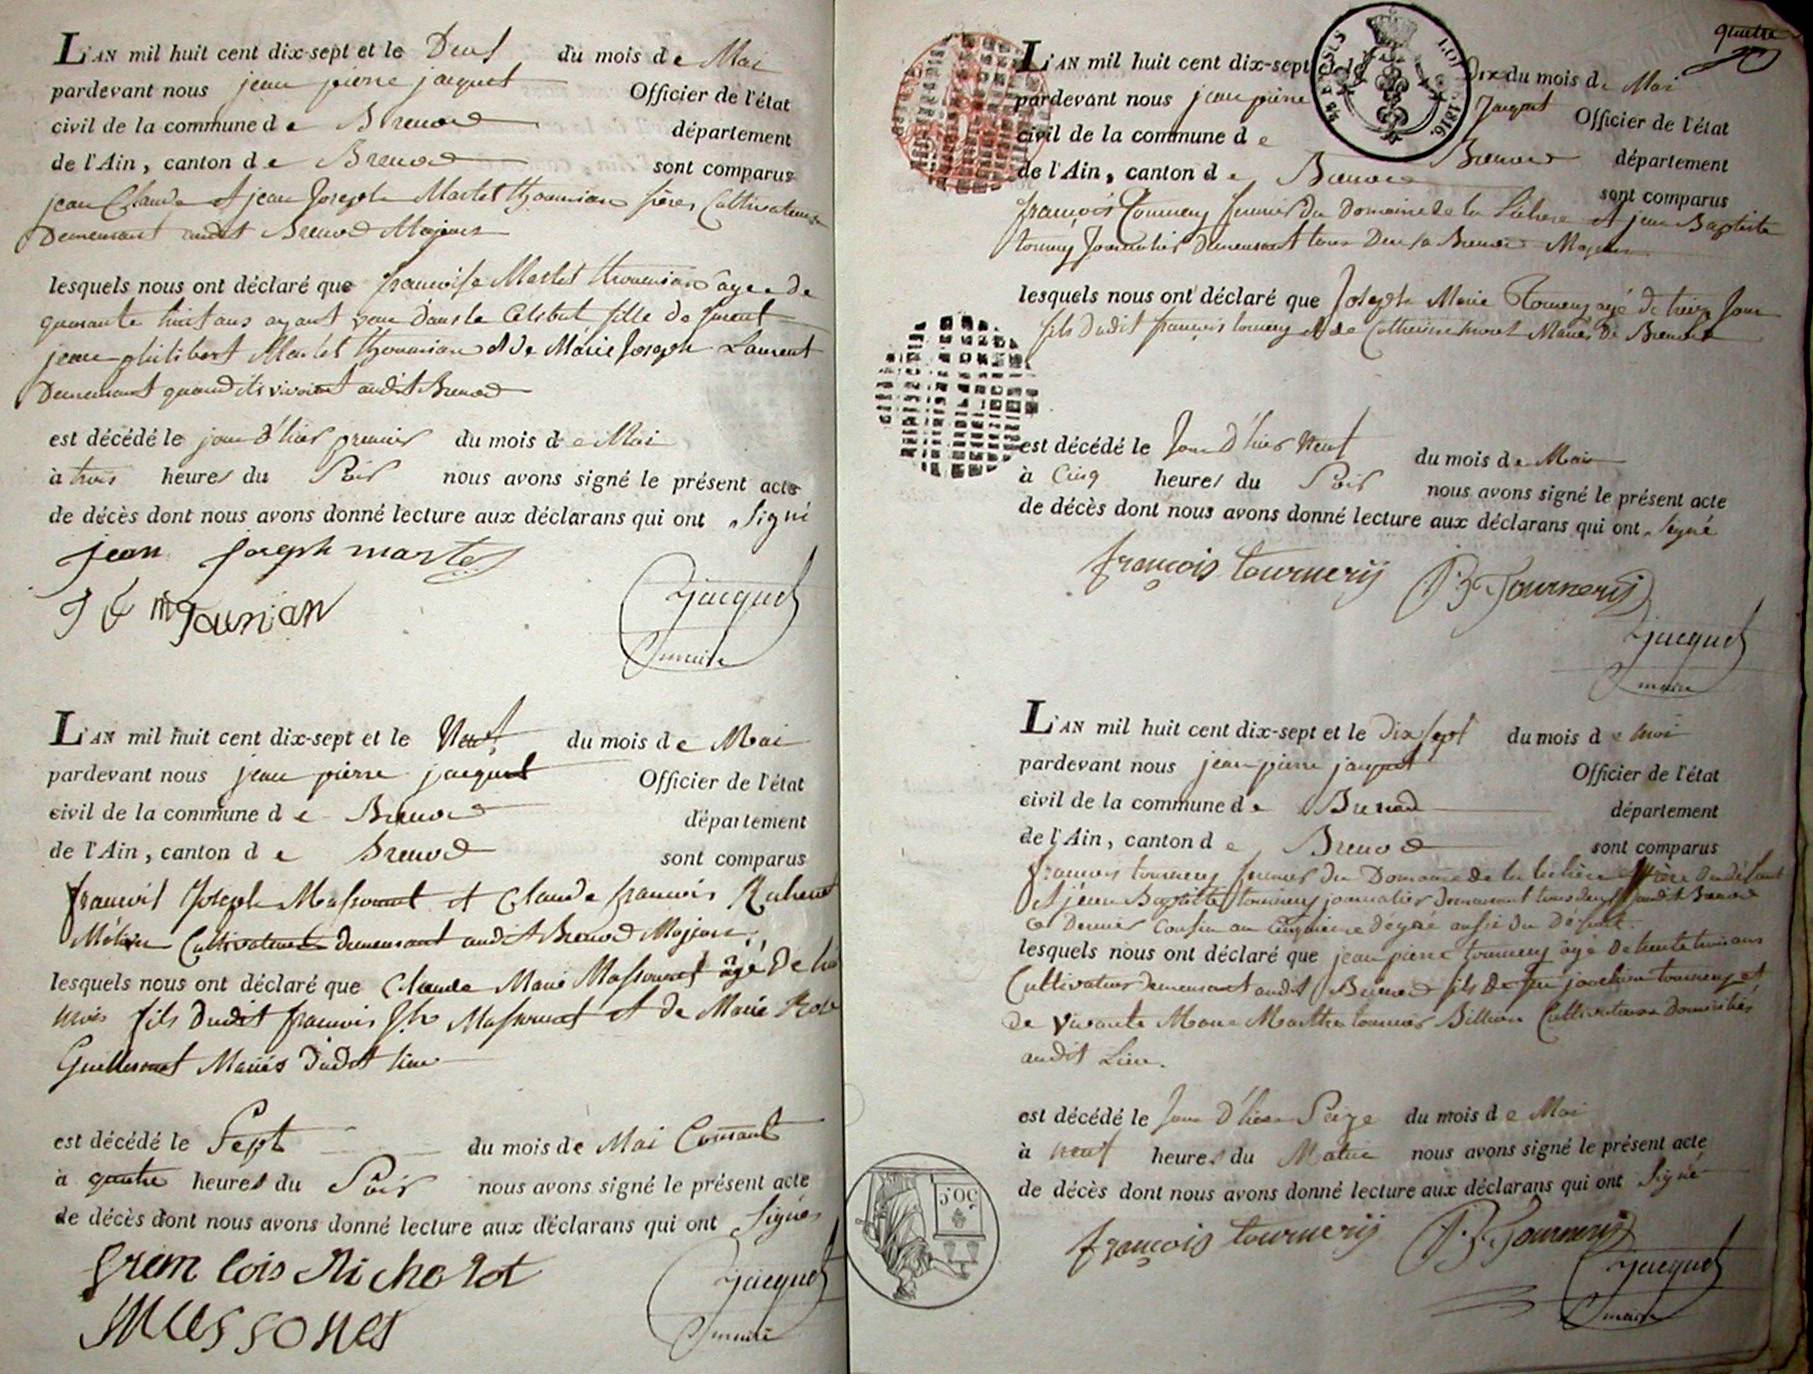 L'AN mil huit cent dix-sept et le Deux du mois de Mai
pardevant nous jean pierre jacquet Officier de l'état
civil de la commune de Brenod département
de l'Ain, canton de Brenod sont comparus
jean Claude et jean Joseph Martel thounian frères Cultivateurs
Demeurant audit Brenod Majeurs
lesquels nous ont déclaré que françoise Martel thounian âgee de
quarante huit ans ayant vecu dans le Celibat fille de
jean philibert Martel thounian et de Marie Joseph Laurent
Demeurant quand ils vivoient audit Brenod
est décédé le jour d'hier premier du mois de Mai
à trois heures du Soir nous avons signé le présent acte
de décès dont nous avons donné lecture aux déclarans qui ont signé
jean joseph martel
Jacquet
maire
L'AN mil huit cent dix-sept et le Neuf du mois de Mai
pardevant nous jean pierre jacquet Officier de l'état
civil de la commune de Brenod département
de l'Ain, canton de Brenod sont comparus
francois Joseph Massonnet et Claude francois
Cultivateurs demeurant audit Brenod Majeurs
lesquels nous ont déclaré que Claude Marie Massonnet âgé De
mois fils dudit francois Jh Massonnet et de Marie
Guillermet Mariés dudit lieu
est décédé le Sept du mois de Mai Courant
à quatre heures du Soir nous avons signé le présent acte
de décès dont nous avons donné lecture aux déclarans qui ont Signés
Jacquet
maire
quatre
L'AN mil huit cent dix-sept et le Dix du mois de Mai
pardevant nous jean pierre Jacquet Officier de l'état
civil de la commune de Brenod département
de l'Ain, canton de Brenod sont comparus
françois Tournery fermier du Domaine de la et jean Baptiste
tournery Journalier demeurant tous Deux a Brenod Majeurs
lesquels nous ont déclaré que Joseph Marie Tournery agé de treize Jour
fils dudit françois tournery et de Catherine moret Mariés De Brenod
est décédé le Jour D'hier Neuf du mois de Mai
à Cinq heures du Soir nous avons signé le présent acte
de décès dont nous avons donné lecture aux déclarans qui ont signé
françois tournerij
JB Tournerij
Jacquet
maire
L'AN mil huit cent dix-sept et le Dix sept du mois de mai
pardevant nous jean pierre jacquet Officier de l'état
civil de la commune de Brenod département
de l'Ain, canton de Brenod sont comparus
francois tournery fermier du Domaine de la frère du défunt
et jean Baptiste tournery journalier demeurant tous deux audit Brenod
ce dernier Cousin au cinquieme dégré aussi du Défunt.
lesquels nous ont déclaré que jean pierre tournery âgé de trente trois ans
Cultivateur demeurant audit Brenod fils de feu joachim tournery et
de vivante Marie Marthe tournier Billion Cultivateurs Domiciliés
audit Lieu.
est décédé le Jour D'hier Seize du mois de Mai
à neuf heures du Matin nous avons signé le présent acte
de décès dont nous avons donné lecture aux déclarans qui ont Signé
françois tournerij
JB Tournerij
Jacquet
maire
LOI
1816.
50.C